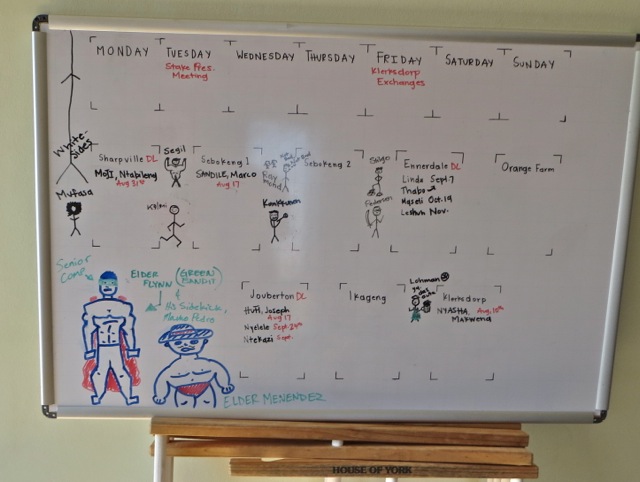 MONDAY
TUESDAY
WEDNESDAY
THURSDAY
FRIDAY
SATURDAY
SUNDAY
Stake Pres.
Meeting
Klerksdorp
Exchanges
White-
sides
Mufasa
Sharpville DL
MoJI, Ntabileng
Aug 31st
Segil
Kilani
Sebokeng 1
SANDILE, Marco
Aug 17
Sebokeng 2
Ennerdale DL
Linda Sept. 7
Thabo
Maseli Oct. 19
Nov.
Orange Farm
Senior
Comp
ELDER
FLYNN
(GREEN
BANDIT)
&
His Sidekick,
Jouberton DL
Huti, Joseph
Aug 17
Nyelele Sept 29th
Ntekazi Sept.
Ikageng
Lohman
Klerksdorp
NYASHA, Aug. 10th
Makwena
ELDER MENENDEZ
HOUSE OF YORK